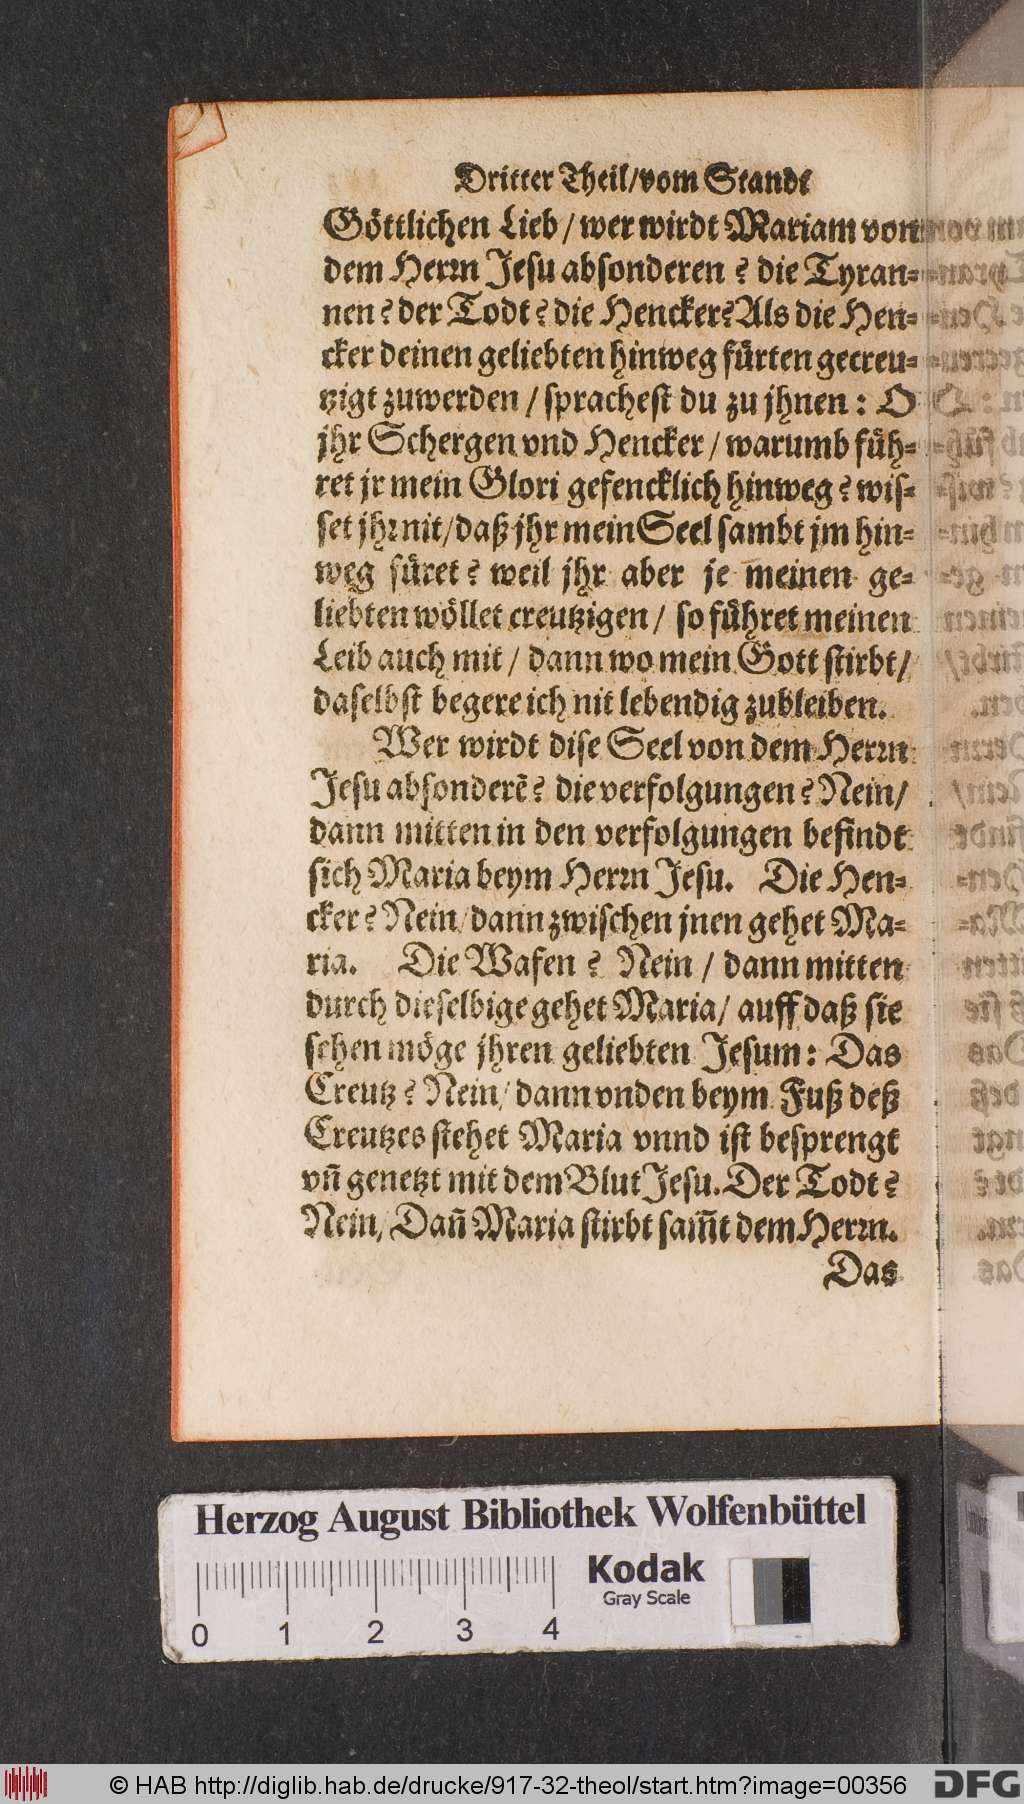 Dritter Theil/vom Stande
Göttlichen Lieb / wer wirdt Mariam von
dem Herrn Jesu absonderen ? die Tyran-
nen ? der Todt ? die Hencker? Als die Hen-
cker deinen geliebten hinweg fürten gecreu-
tzigt zuwerden / sprachest du zu jhnen : O
jhr Schergen vnd Hencker / warumb füh-
ret jr mein Glori gefencklich hinweg ? wis-
set jhr nit/daß jhr mein Seel sambt jm hin-
weg füret ? weil jhr aber je meinen ge-
liebten wöllet creutzigen / so führet meinen
Leib auch mit / dann wo mein Gott stirbt/
daselbst begere ich nit lebendig zubleiben.
Wer wirdt dise Seel von dem Herrn
Jesu absonderē ? die verfolgungen ? Nein/
dann mitten in den verfolgungen befindt
sich Maria beym Herrn Jesu. Die Hen-
cker ? Nein/dann zwischen jnen gehet Ma-
ria. Die Wafen ? Nein / dann mitten
durch dieselbige gehet Maria/ auff daß sie
sehen möge jhren geliebten Jesum : Das
Creutz ? Nein/ dann vnden beym Fuß deß
Creutzes stehet Maria vnnd ist besprengt
vñ genetzt mit dem Blut Jesu. Der Todt ?
Nein/ Dañ Maria stirbt sam̃t dem Herrn.
Das
Herzog August Bibliothek Wolfenbüttel
Kodak
Gray Scale
0 1 2 3 4
© HAB http://diglib.hab.de/drucke/917-32-theol/start.htm?image=00356
DFG